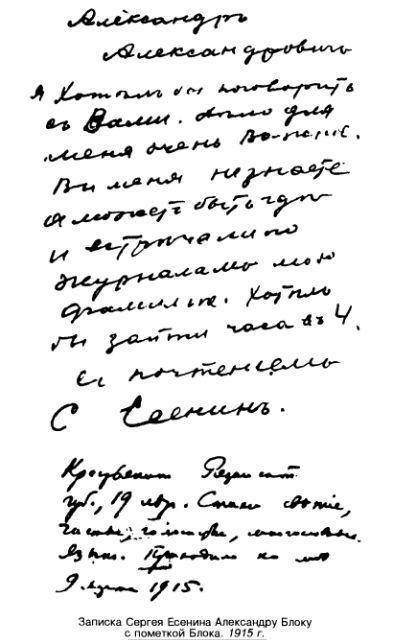 Александръ
Александровичъ
Я хотѣлъ бы поговорить
съ Вами. Дѣло для
меня очень важное.
Вы меня не знаете
а может быть где
и встречали по
журналамъ мою
фамилию. Хотѣлъ
бы зайти часа въ 4.
Съ почтениемъ
С Есенинъ.
Крестьянин Рязанской
губ., 19 лет. Стихи свежие,
чистые, голосистые, многословные.
Язык. Приходил ко мне
9 марта 1915.
Записка Сергея Есенина Александру Блоку
с пометкой Блока. 1915 г.